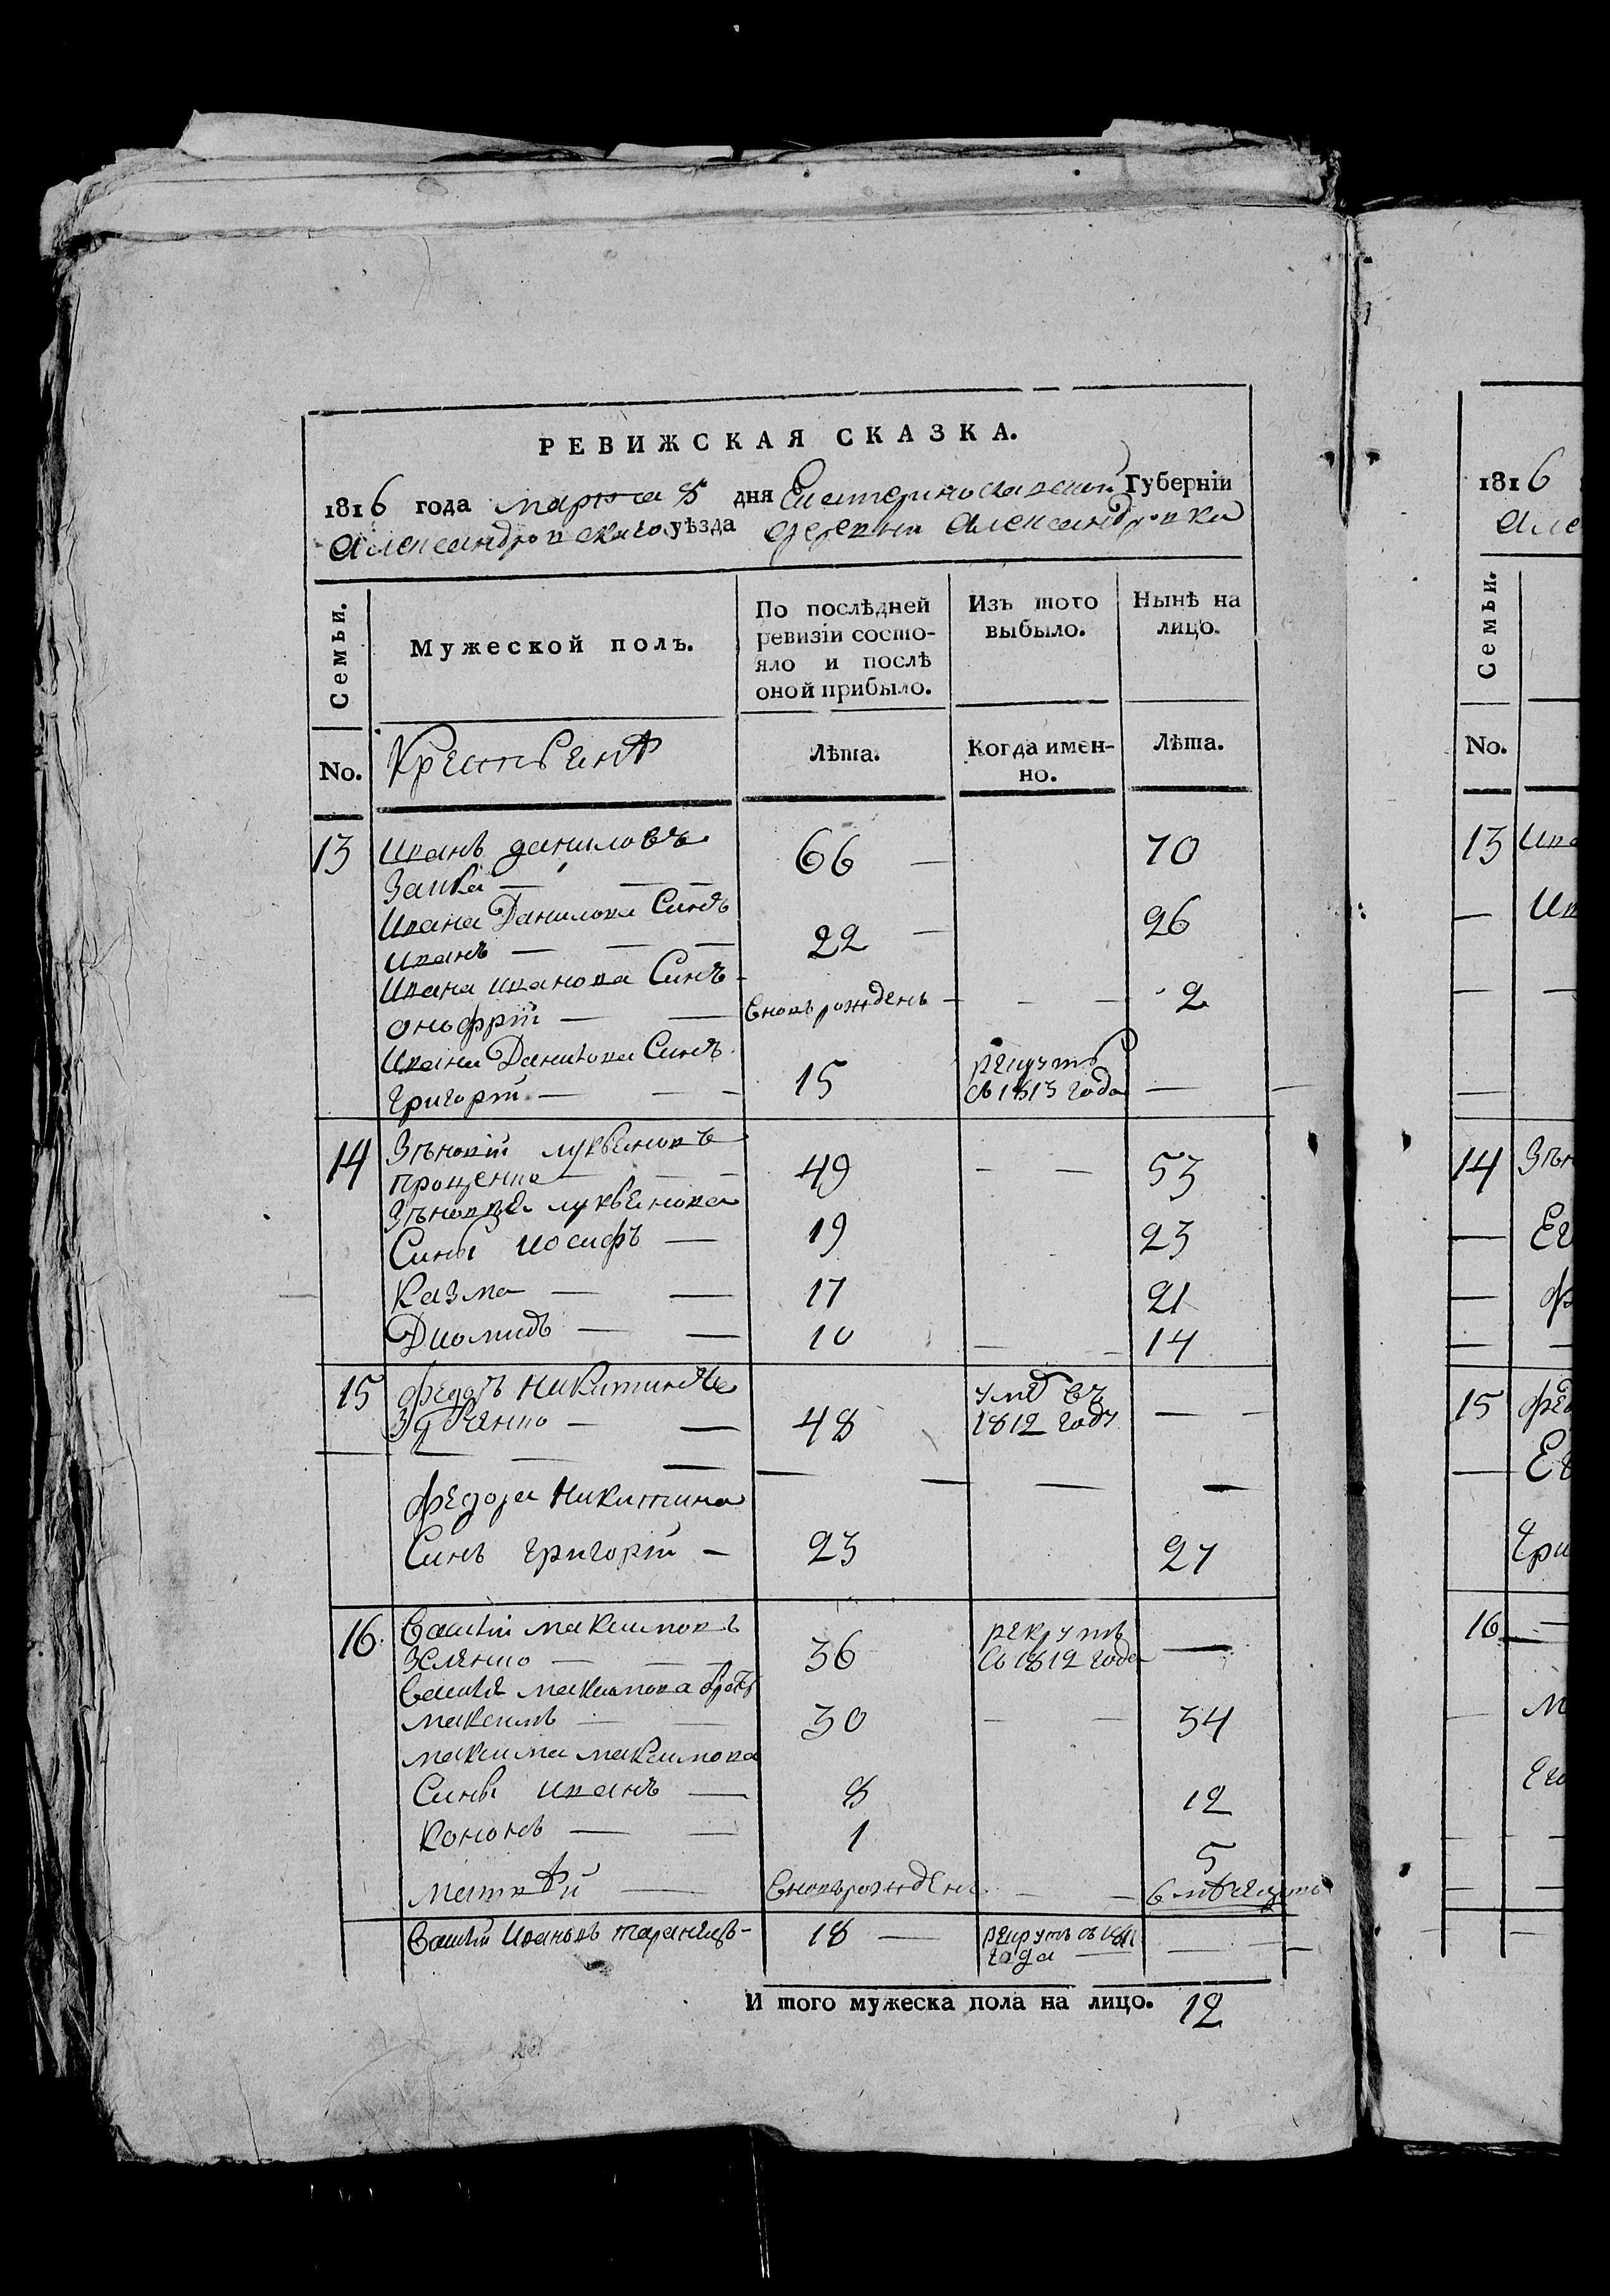 РЕВИЖСКАЯ СКАЗКА.
1816 года марта 8 дня Екатеринославской Губерніи
Александровскаго уѣзда деревни Александровки
Семьи.
Мужеской полъ.
По послѣдней ревизіи состояло и послѣ оной прибыло.
Изъ того выбыло.
Нынѣ на лицо.
No.
Крестьянѣ
Лѣта.
Когда именно.
Лѣта.
13 Иванъ даниловъ
Заика — — — 66 — 70
Ивана Данилова Синъ
иванъ — — — 22 — 26
Ивана иванова Синъ -
онофрій — — вновьрожденъ — — — 2
Ивана Данилова Синъ
григорій — — — 15 рекрутъ съ 1813 года —
14 Зѣновій луквеновъ
проценко — — — 49 — — 53
Зѣновія луквенова
Сины иосифъ — 19 23
Казма — — 17 21
Диомидъ — — 10 — — 14
15 федоръ Никитинъ
Зубченко — — 48 умре въ 1812 году — —
федора Никитина
Синъ григорій — 23 27
16. Василій максимовъ
— — — 36 рекрутъ съ 1812 года —
Василія максимова братъ
максимъ — — 30 — — 34
максима максимова
Сины иванъ — 8 12
Кононъ — — 1 5
матвѣй — вновьрожденъ — — 6 мѣсяцовъ
Василій Ивановъ таранецъ - 18 — рекрутъ съ 1811 года — —
И того мужеска пола на лицо. 12
1816
Але
Семьи.
No.
13 Ива
— Ив
— —
—
14 Зѣн
— Ег
— ф
— —
15 фед
— Ег
Гри
16 —
— М
Его
— —
— —
—